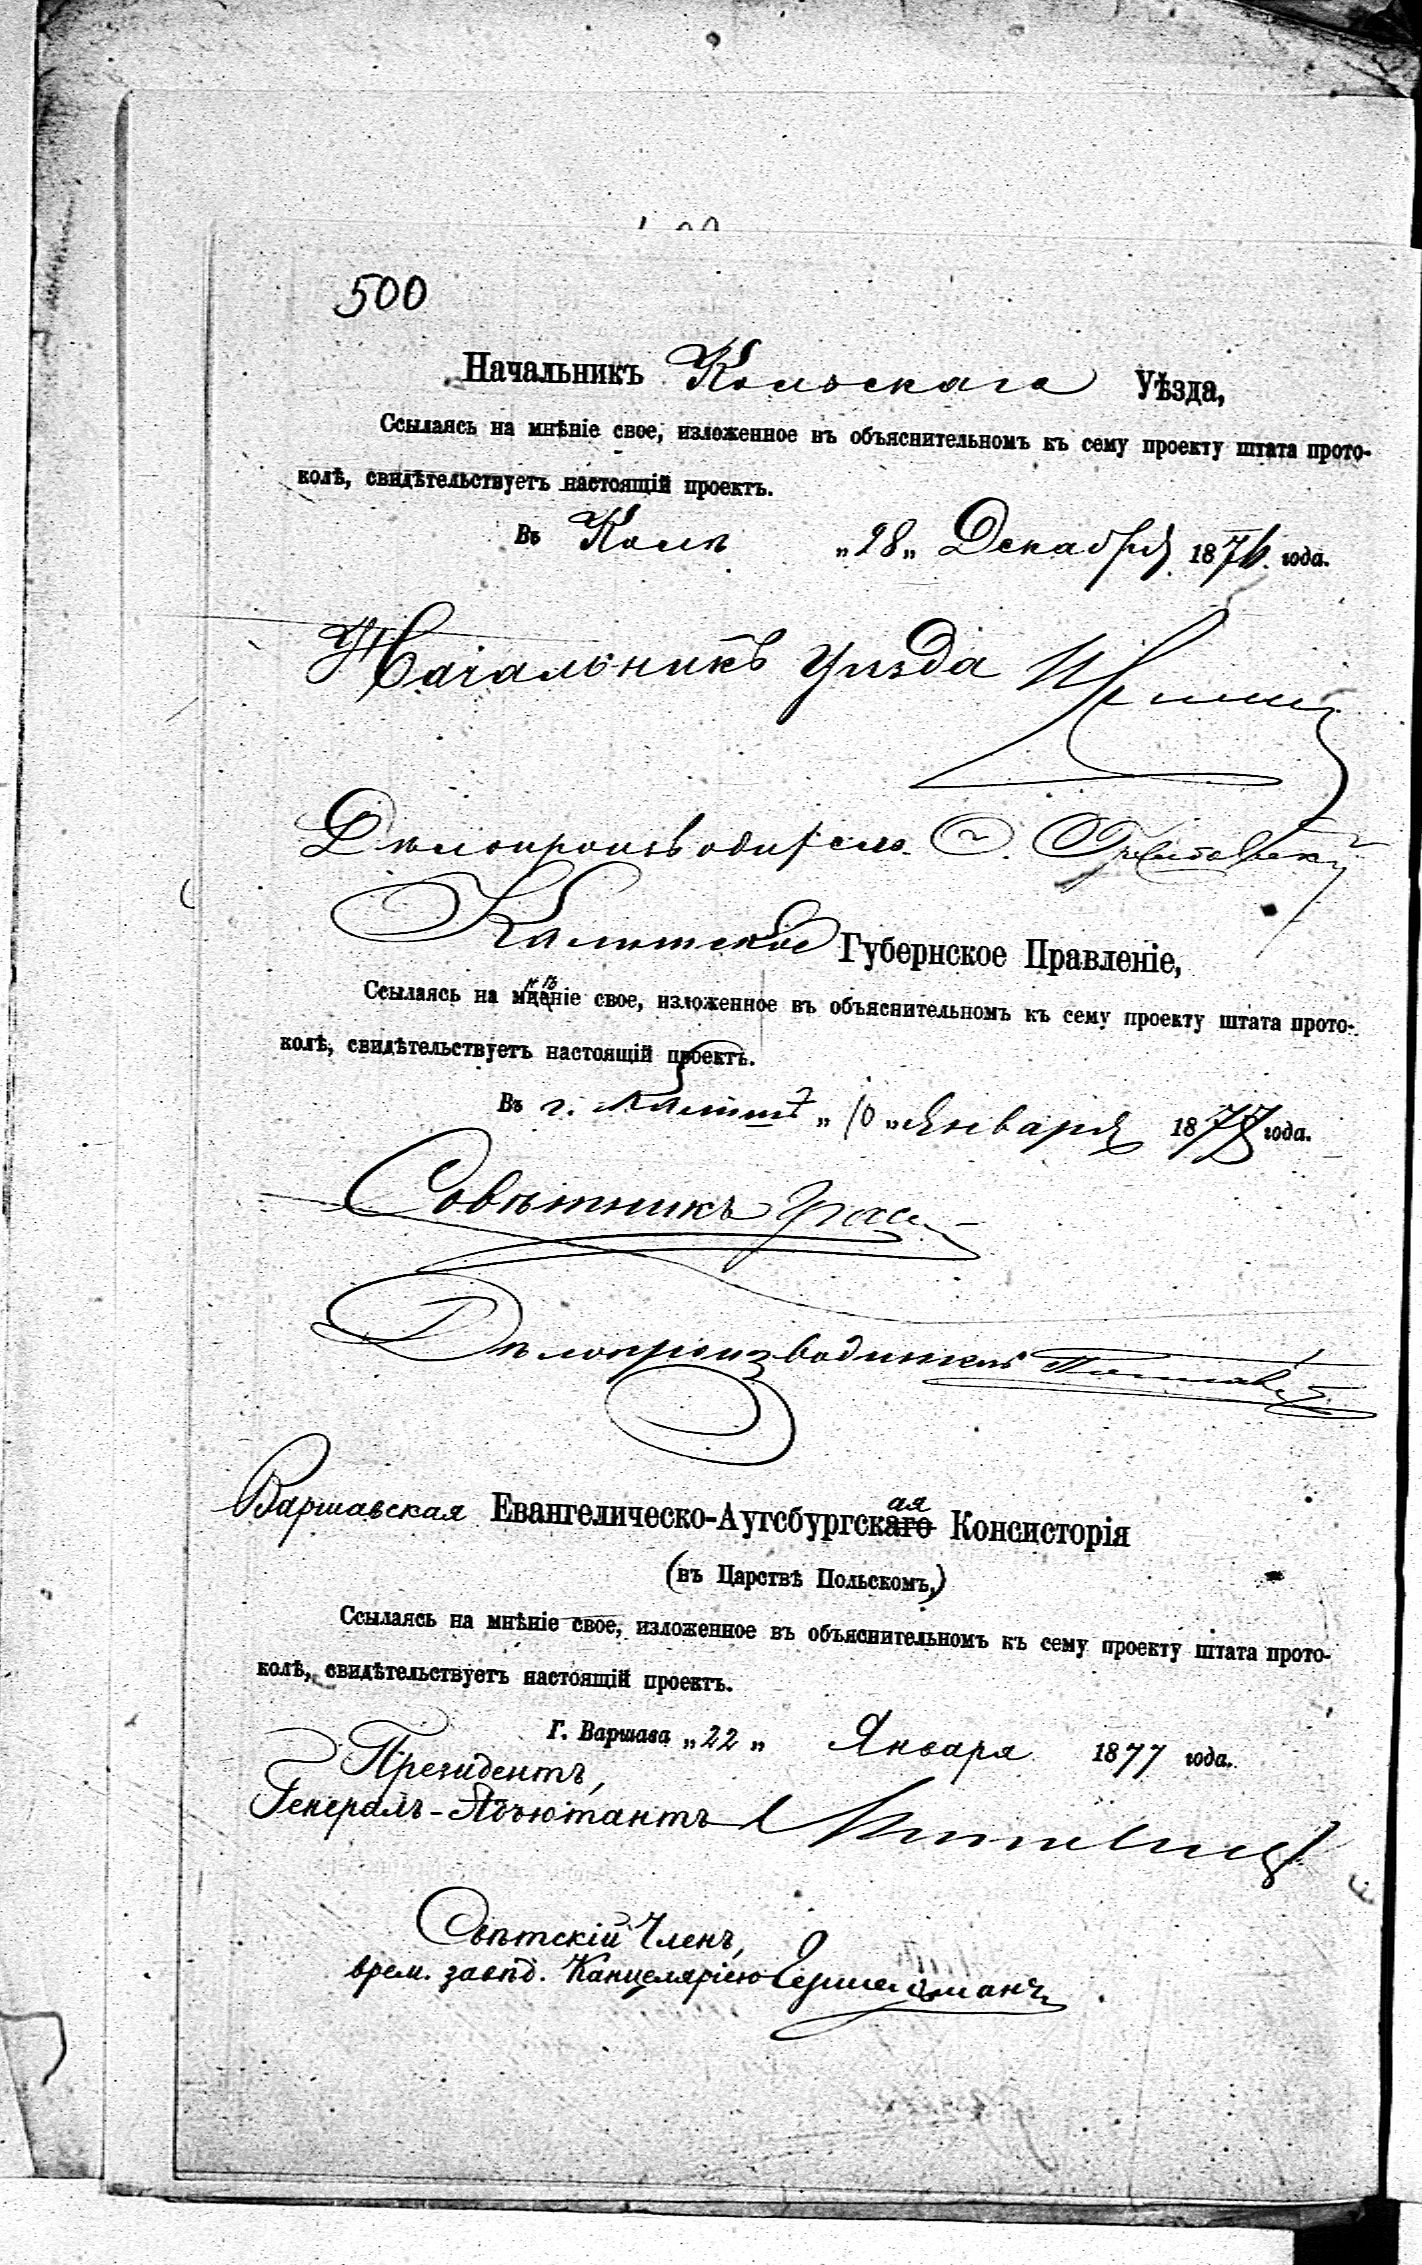 500
Начальникъ Кольскаго Уѣзда,
Ссылаясь на мнѣніе свое, изложенное въ объяснительномъ къ сему проекту штата прото-
колѣ, свидѣтельствуетъ настоящій проектъ.
Въ Колѣ „28„ Декабря 1876. года.
Начальникъ уѣзда
Дѣлопроизводитель
Калишское Губернское Правленіе,
Ссылаясь на мнѣніе свое, изложенное въ объяснительномъ къ сему проекту штата прото-
колѣ, свидѣтельствуетъ настоящій проектъ.
Въ г. Калишѣ „10„ Января 1877 года.
Совѣтникъ
Дѣлопроизводитель
Варшавская Евангелическо-Аугсбургскаго ая Консисторія
(въ Царствѣ Польскомъ,)
Ссылаясь на мнѣніе свое, изложенное въ объяснительномъ къ сему проекту штата прото-
колѣ, свидѣтельствуетъ настоящій проектъ.
Г. Варшава „22„ Января 1877 года.
Президентъ,
Генералъ-Адъютантъ
Свѣтскій Членъ,
врем. завѣд. Канцеляріею Гершельманъ